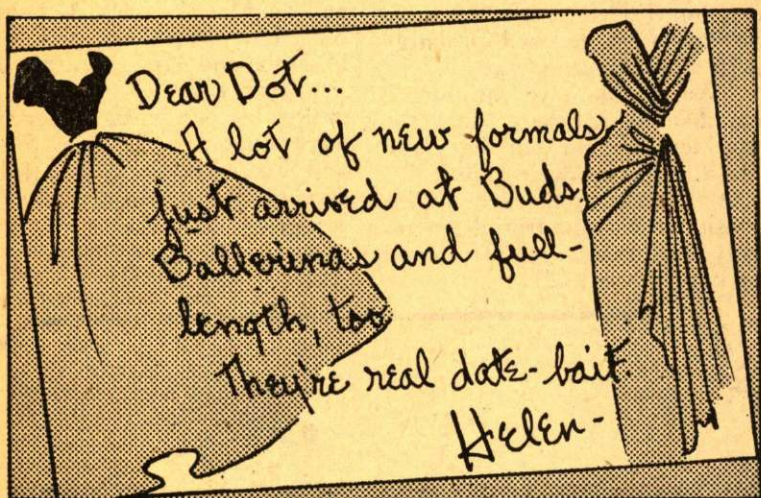 Dear Dot...
A lot of new formals
just arrived at Buds.
Ballerinas and full-
length, too
They're real date-bait.
Helen-